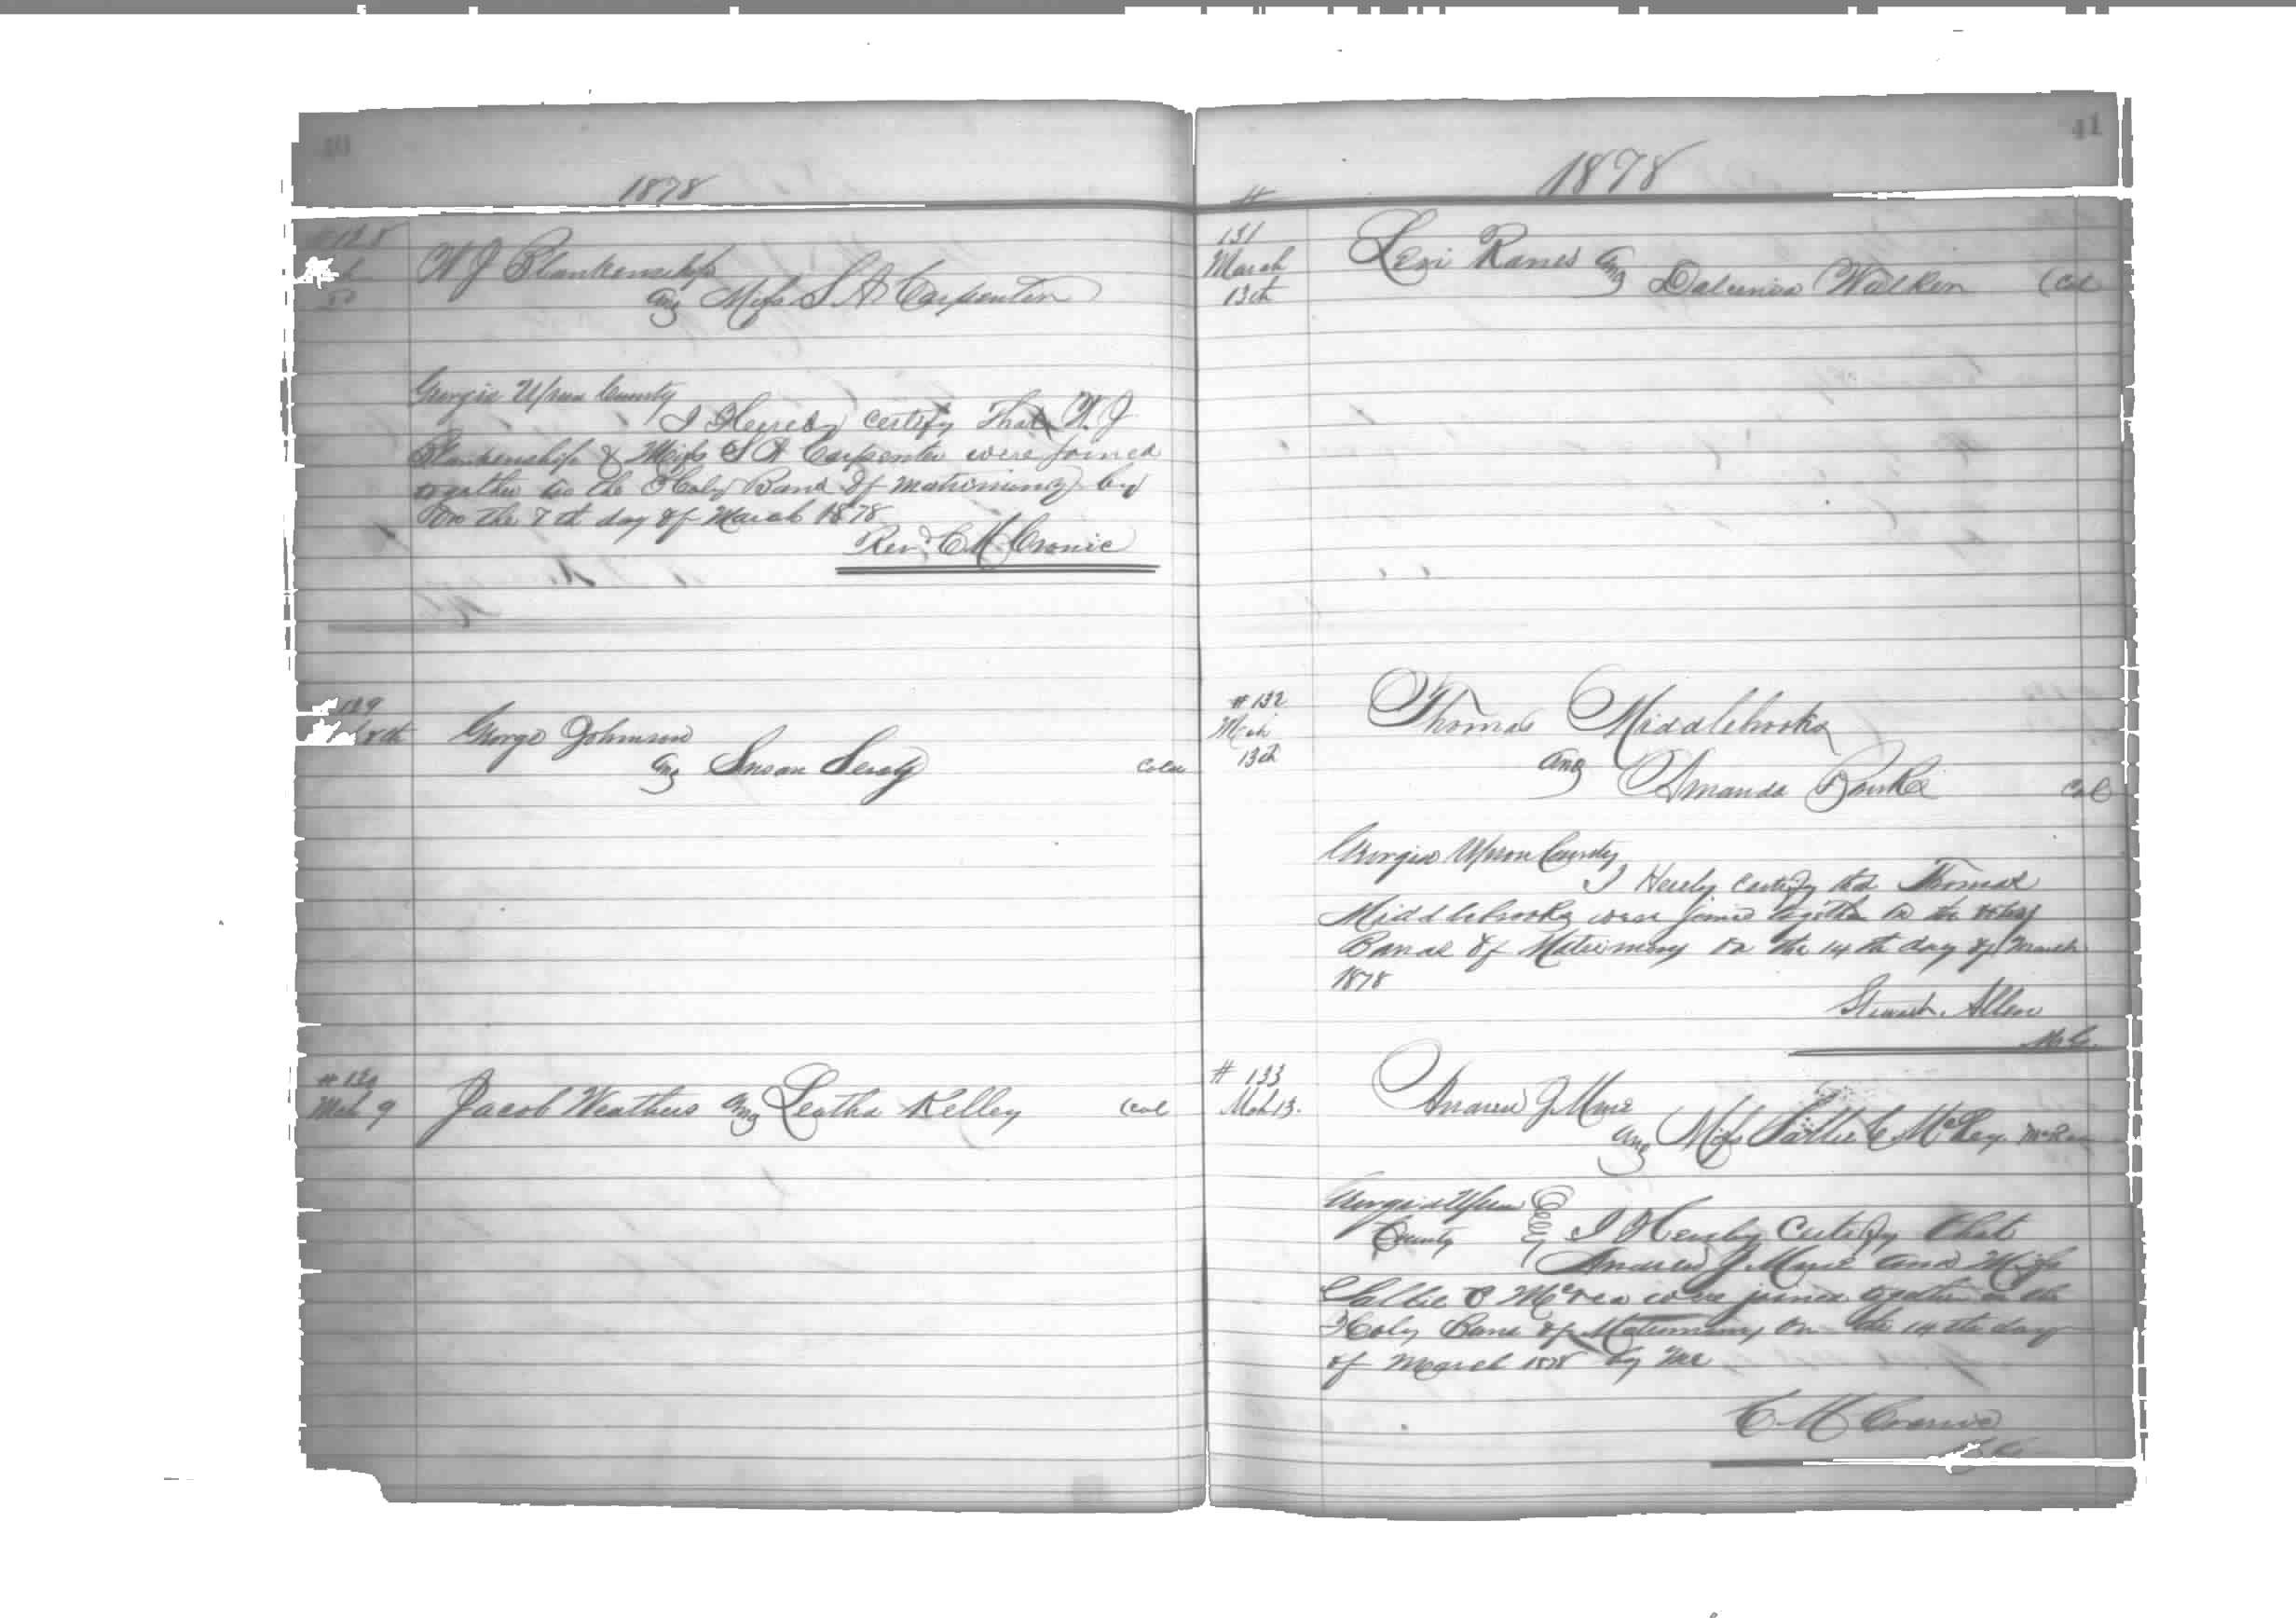 40
1878
W J Blankenship
and Miss S A Carpenter
Georgia Upson County
I Hereby Certify That W. J
Blankenship & Miss S A Carpenter were joined
together in the Holy Band of matrimony by
on the 7th day of March 1878
Rev. C M Cronic
129
8th
George Johnson
and Susan
Mch 9
Jacob Weathers and Leatha Kelley (Col
41
1878
#
131
March
13th
Levi Ranes and
Walker (Col
#132
Mch
13th
Thomas Middlebrooks
and
Amanda Col
Georgia Upson County
I Herely Certify that Thomas
Middlebrooks were joined together in the Holy
Band of Matrimony on the 14th day of March
1878
Stewart. Allen
M. G.
# 133
Mch 13.
Andrew J
and Miss Sallie C
Georgia Upson
County
I Hereby Certify that
Andrew J and Miss
Sallie C McCrea were joined together in the
Holy Band of Matrimony on the 14 the day
of March 1878 by me
C. M Cronic